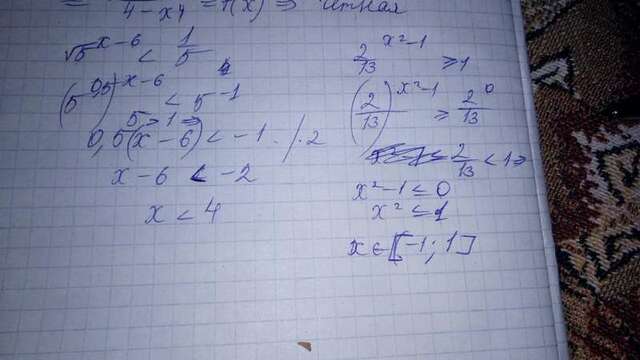 = 4-x⁴ = f(x) ⇒ чётная
√5^(x-6) < 1/5
(5^0,5)^(x-6) < 5^-1
5 > 1 ⇒
0,5(x-6) < -1 /·2
x-6 < -2
x < 4
2/13^(x²-1) ≥ 1
(2/13)^(x²-1) ≥ 2/13^0
2/13 < 1 ⇒
x²-1 ≤ 0
x² ≤ 1
x ∈ [-1; 1]